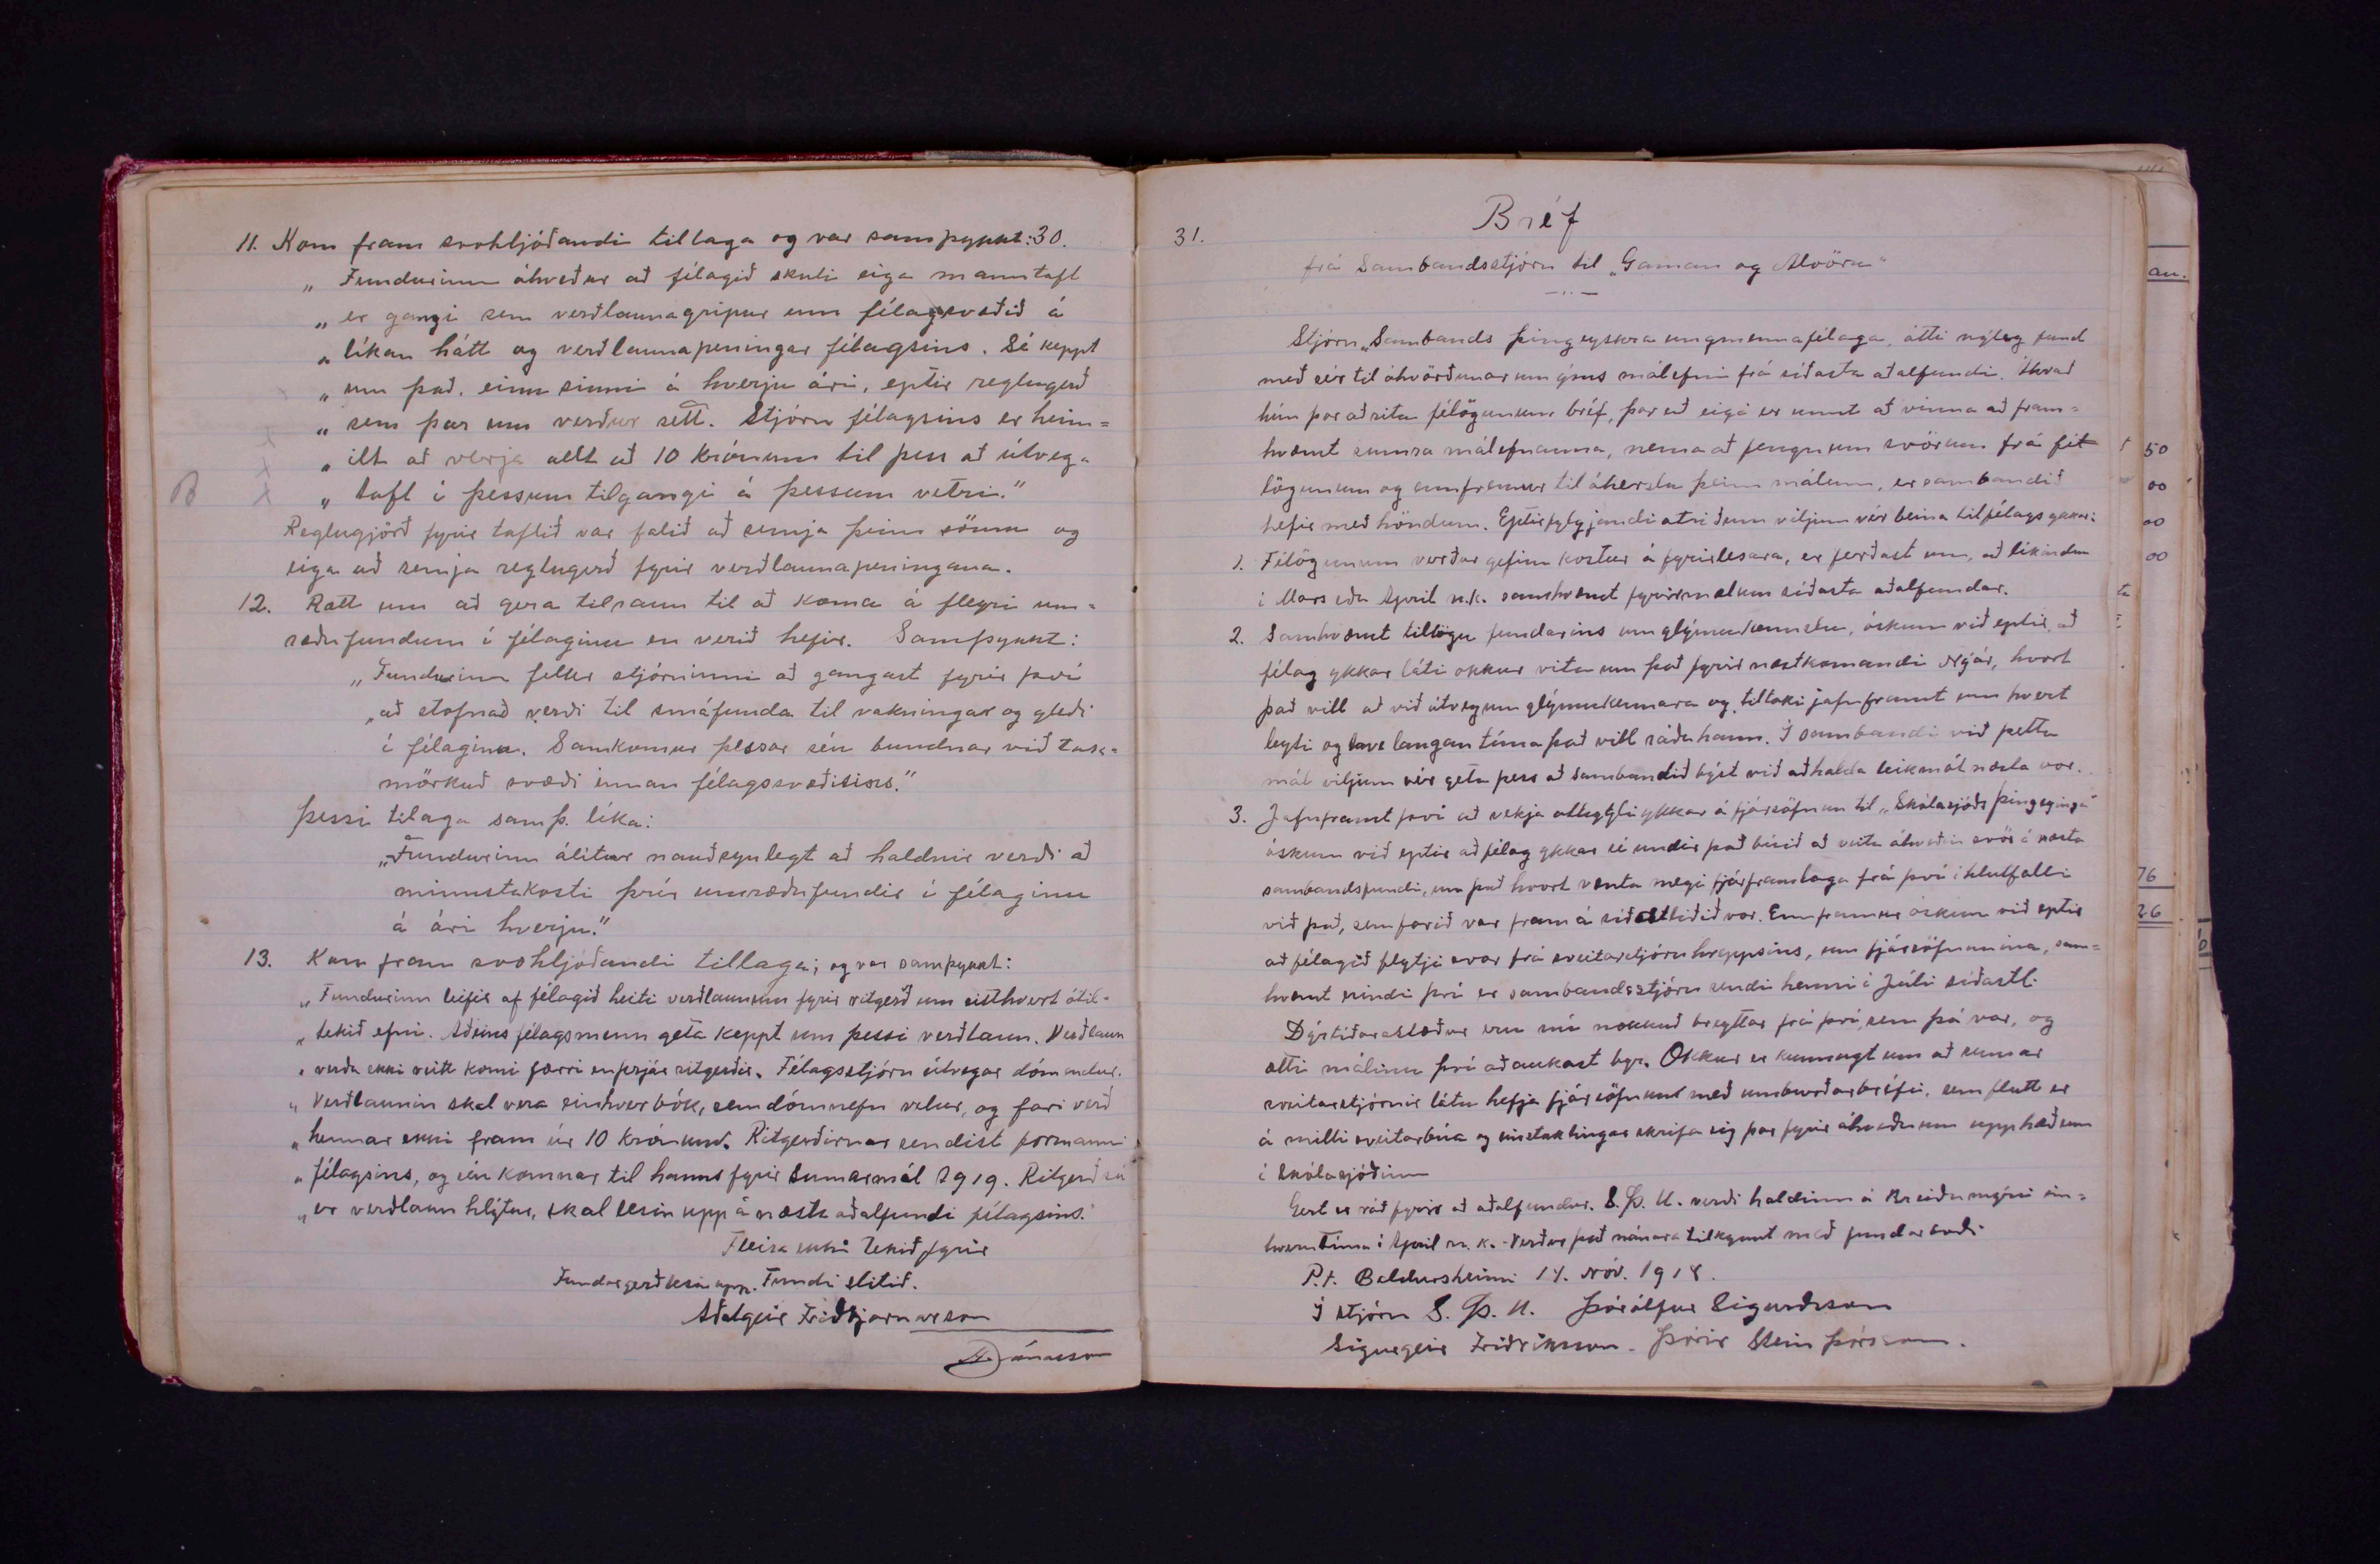 11. Kom fram svohljóðandi tillaga og var samþykkt: 30.
„ Fundurinn ákveður að félagið skuli eiga manntafl
„ er gangi sem verðlaunagripur um félagssvæðið á
„ líkan hátt og verðlaunapeningar félagsins. Sé keppt
„ um það, einu sinni á hverju ári, eptir reglugerð
„ sem þar um verður sett. Stjórn félagsins er heim=
„ ilt að verja allt að 10 krónum til þess að útvega
„ tafl í þessum tilgangi á þessum vetri."
Reglugjörð fyrir taflið var falið að semja þeim sömu og
eiga að semja reglugerð fyrir verðlaunapeningana.
12. Rætt um að gera tilraun til að koma á fleyri um=
ræðufundum í félaginu en verið hefir. Samþykkt:
„Fundurinn felur stjórninni að gangast fyrir því
„að stofnað verði til smáfunda til vakningar og gleði
í félaginu. Samkomur þessar séu bundnar við tak=
mörkuð svæði innan félagssvæðisins."
Þessi tilaga samþ. líka:
„Fundurinn álitur nauðsynlegt að haldnir verði að
minnstakosti þrír umræðufundir í félaginu
á ári hverju."
13. Kom fram svohljóðandi tillaga; og var samþykkt:
„Fundurinn leifir af félagið heiti verðlaunum fyrir ritgerð um eitthvert ótil-
„ tekið efni. Aðeins félagsmenn geta keppt um þessi verðlaun. Verðlaun
„ verða ekki veitt komi færri en þrjár ritgerðir. Félagsstjórn útvegar dómendur.
„ Verðlaunin skal vera einhver bók, sem dómnefn velur, og fari verð
„ hennar ekki fram úr 10 krónum. Ritgerðirnar sendist formanni
„ félagsins, og séu komnar til hanns fyrir Sumarmál 1919. Ritgerð sú
„ er verðlaun hlýtur, skal lesin upp á næsta aðalfundi félagsins."
Fleira ekki tekið fyrir
Fundargerð lesin upp. Fundi slitið.
Aðalgeir Friðbjarnarson
Jónasson
31.
Bréf
frá Sambandsstjórn til „Gaman og Alvöru"
Stjórn „Sambands þingeyskra ungmennafélaga, átti nýleg fund
með sér til ákvörðunar um ýms málefni frá síðasta aðalfundi. Ákvað
hún þar að rita félögunum bréf, þar eð eigi er unnt að vinna að fram=
kvæmt sumra málefnanna, nema að fengnum svörum frá fél
lögunum og ennfremur til áherslu þeim málum, er sambandið
hefir með höndum. Eptirfylgjandi atriðum viljum vér beina til félags ykkar:
1. Félögunum verður gefinn kostur á fyrirlesara, er ferðast um, að líkindum
í Mars eða Apríl n.k. samkvæmt fyrirmælum síðasta aðalfundar.
2. Samkvæmt tillögu fundarins um glýmukennslu, óskum við eptir, að
félag ykkar láti okkur vita um það fyrir næstkomandi Nýár, hvort
það vill að við útvegum glýmukennara og tiltaki jafnframt um hvert
leyti og hve langan tíma það vill ráða hann. Í sambandi við þetta
mál viljum vér geta þess að Sambandið býst við að halda leikmót næsta vor.
3. Jafnframt því að vekja athygli ykkar á fjársöfnun til „Skólasjóðs Þingeyinga"
óskum við eptir að félag ykkar sé undir það búið að veita ákveðin svör á næsta
sambandsfundi, um það hvort vænta megi fjárframlaga frá því í hlutfalli
við það, sem farið var fram á síðastliðið vor. Ennfremur óskum við eptir
að félagið flytji svar frá sveitarstjórn hreppsins, um fjársöfnunina, sam=
kvæmt erindi því er sambandsstjórn sendi henni í Júlí síðastl.
Dýrtíðarástæður eru nú nokkuð breyttar frá því, sem þá var, og
ætti málinu því að aukast byr. Okkur er kunnugt um að sumar
sveitarstjórnir láta hefja fjársöfnun með umburðarbréfi, sem flutt er
á milli sveitarbúa og einstaklingar skrifa sig þar fyrir ákveðnum upphæðum
í Skólasjóðinn
Gert er ráð fyrir að aðalfundur. S.Þ.U. verði haldinn á Breiðumýri ein=
hverntíma í Apríl n.k. - Verður það nánara tilkynnt með fundarboði
P.t. Baldursheimi 14. Nóv. 1918.
Í stjórn S.Þ.U. Þórólfur Sigurðsson
Sigurgeir Friðriksson. Þórir Steinþórsson.
au.
50
00
00
00
76
26